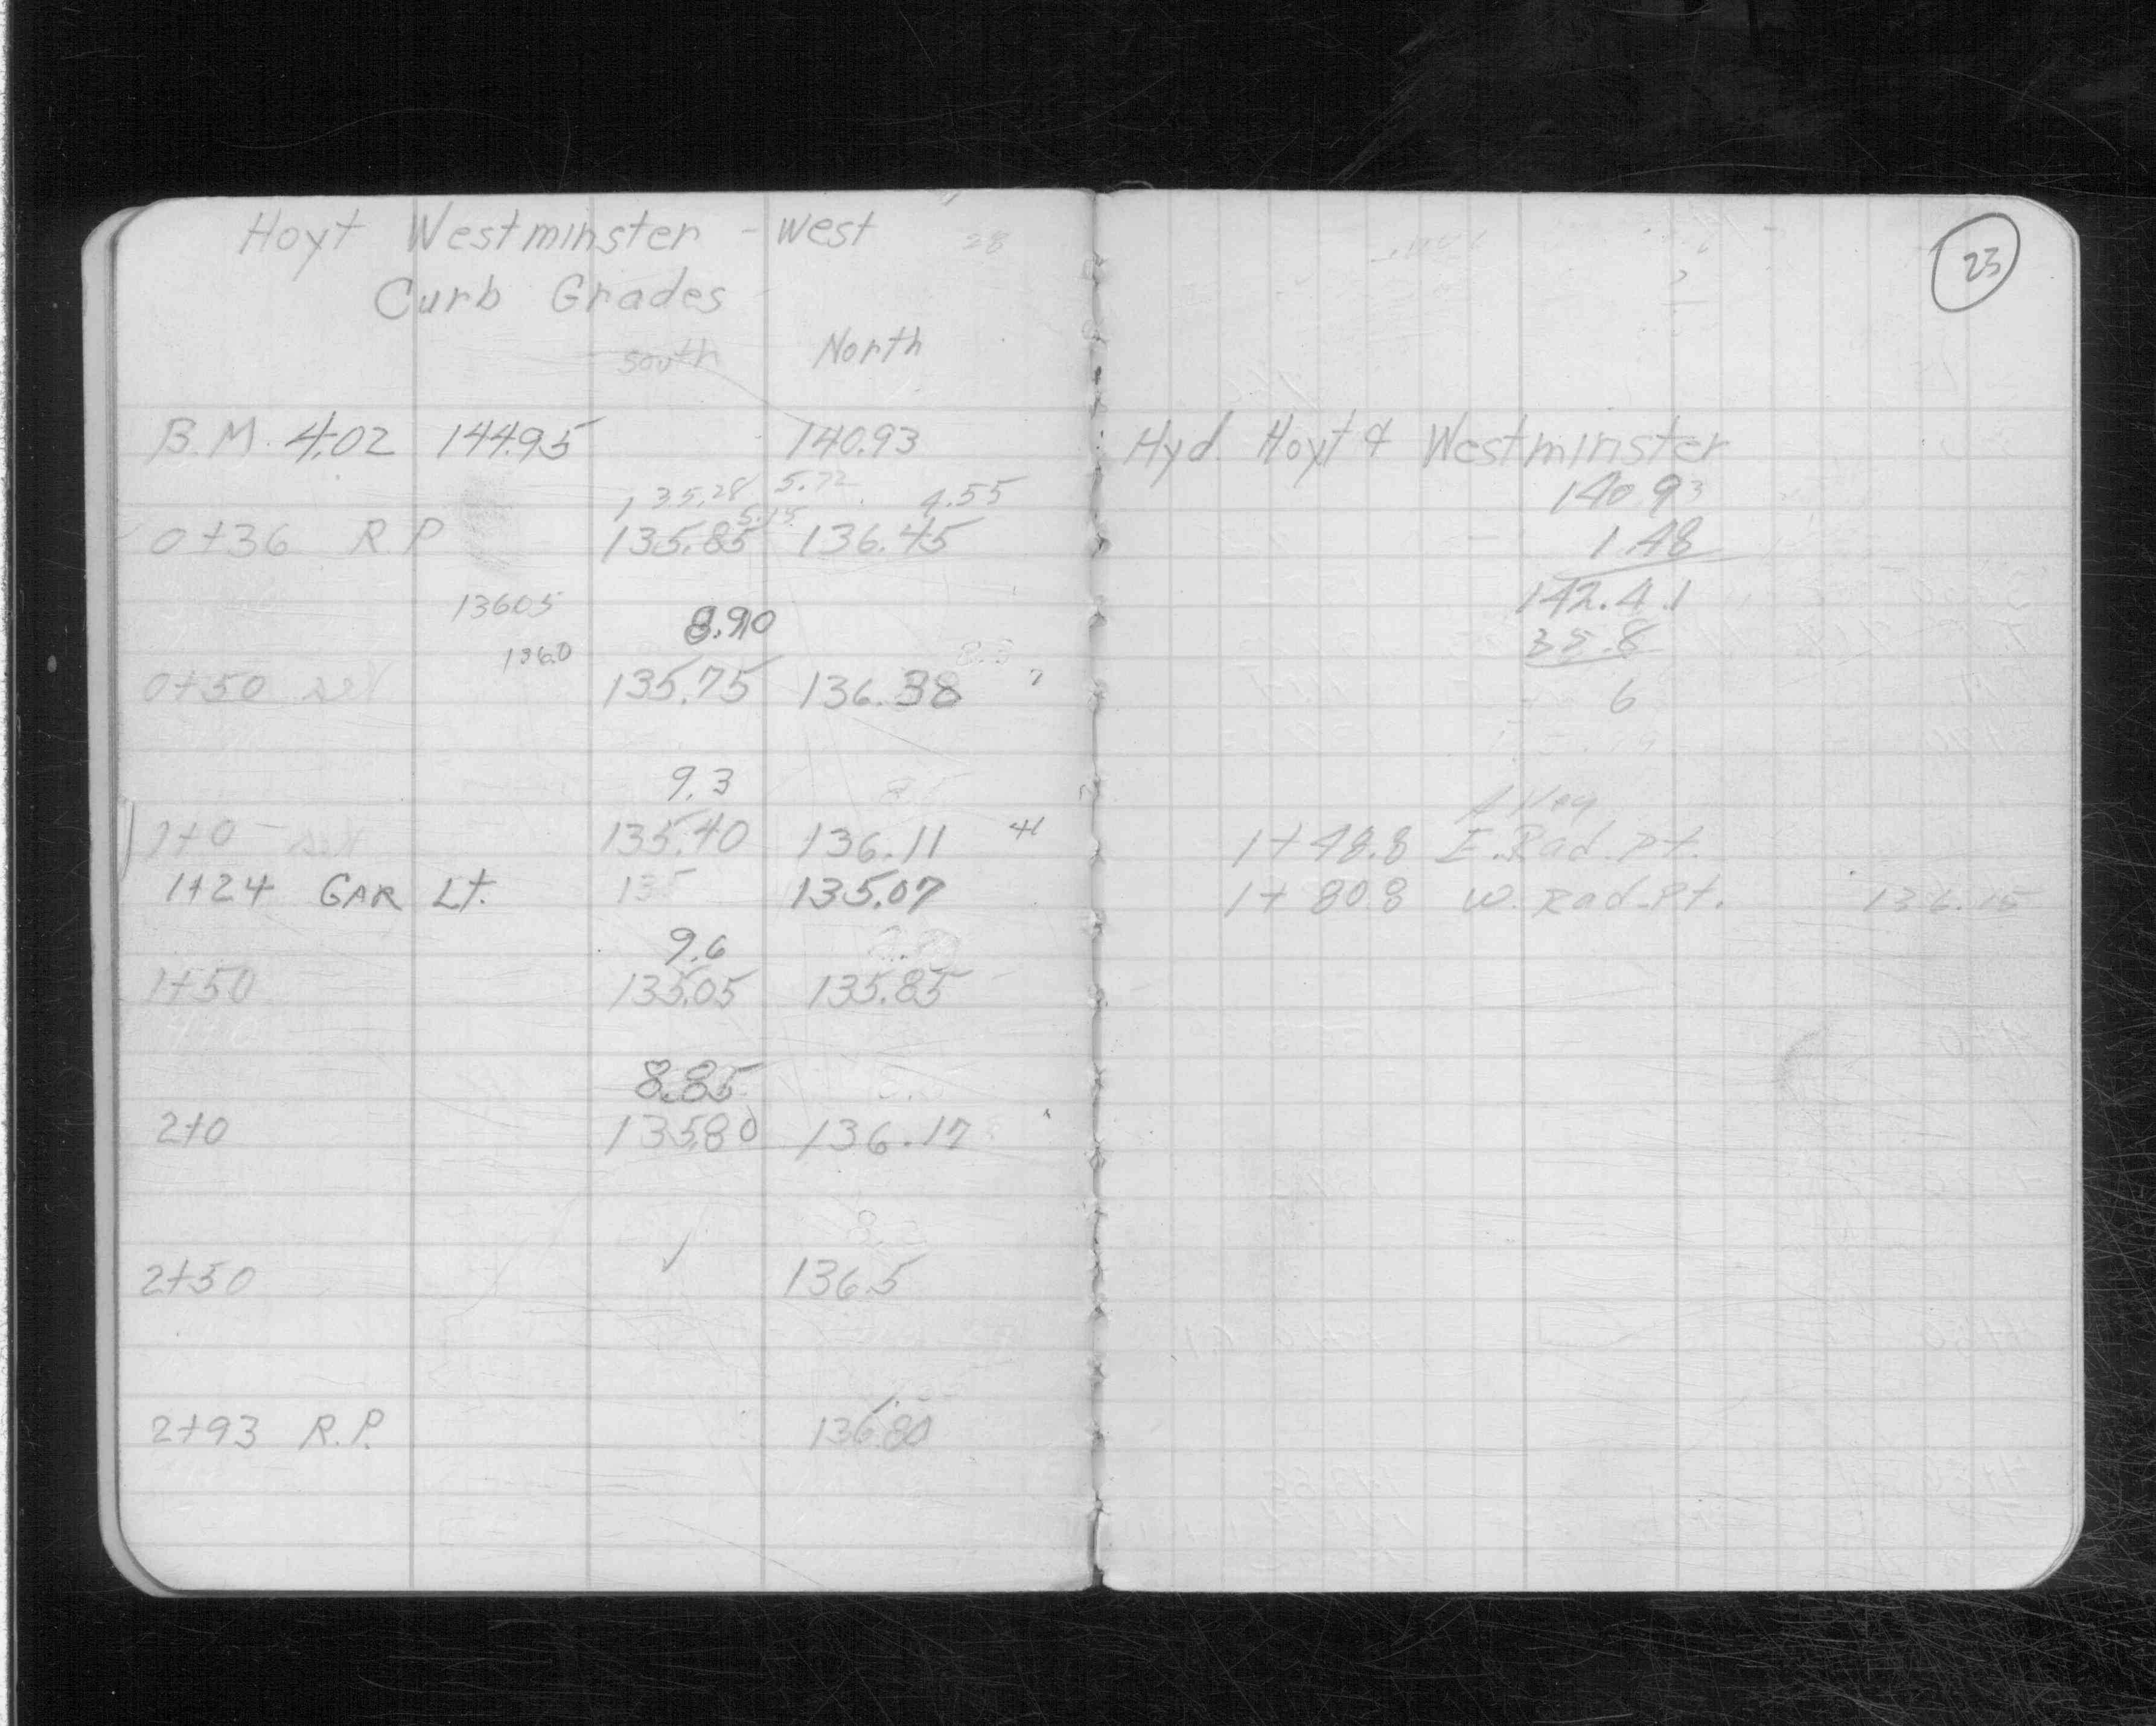 Hoyt Westminster - West
Curb Grades
South North
B.M. 4.02 144.95 140.93
135.28 5.72 4.55
5.15
0+36 R.P 135.85 136.45
136.05
8.90
136.0
0+50 set 135.75 136.38
9.3
1+0 - set 135.40 136.11
1+24 GAR Lt. 135 135.07
9.6
1+50 135.05 135.85
8.85
2+0 135.80 136.17
2+50 136.5
2+93 R.P. 136.80
23
Hyd. Hoyt & Westminster
140.93
1.48
142.41
35.8
6
Alley
1+48.8 E. Rad. Pt.
1+80.8 W. Rad. Pt. 136.15